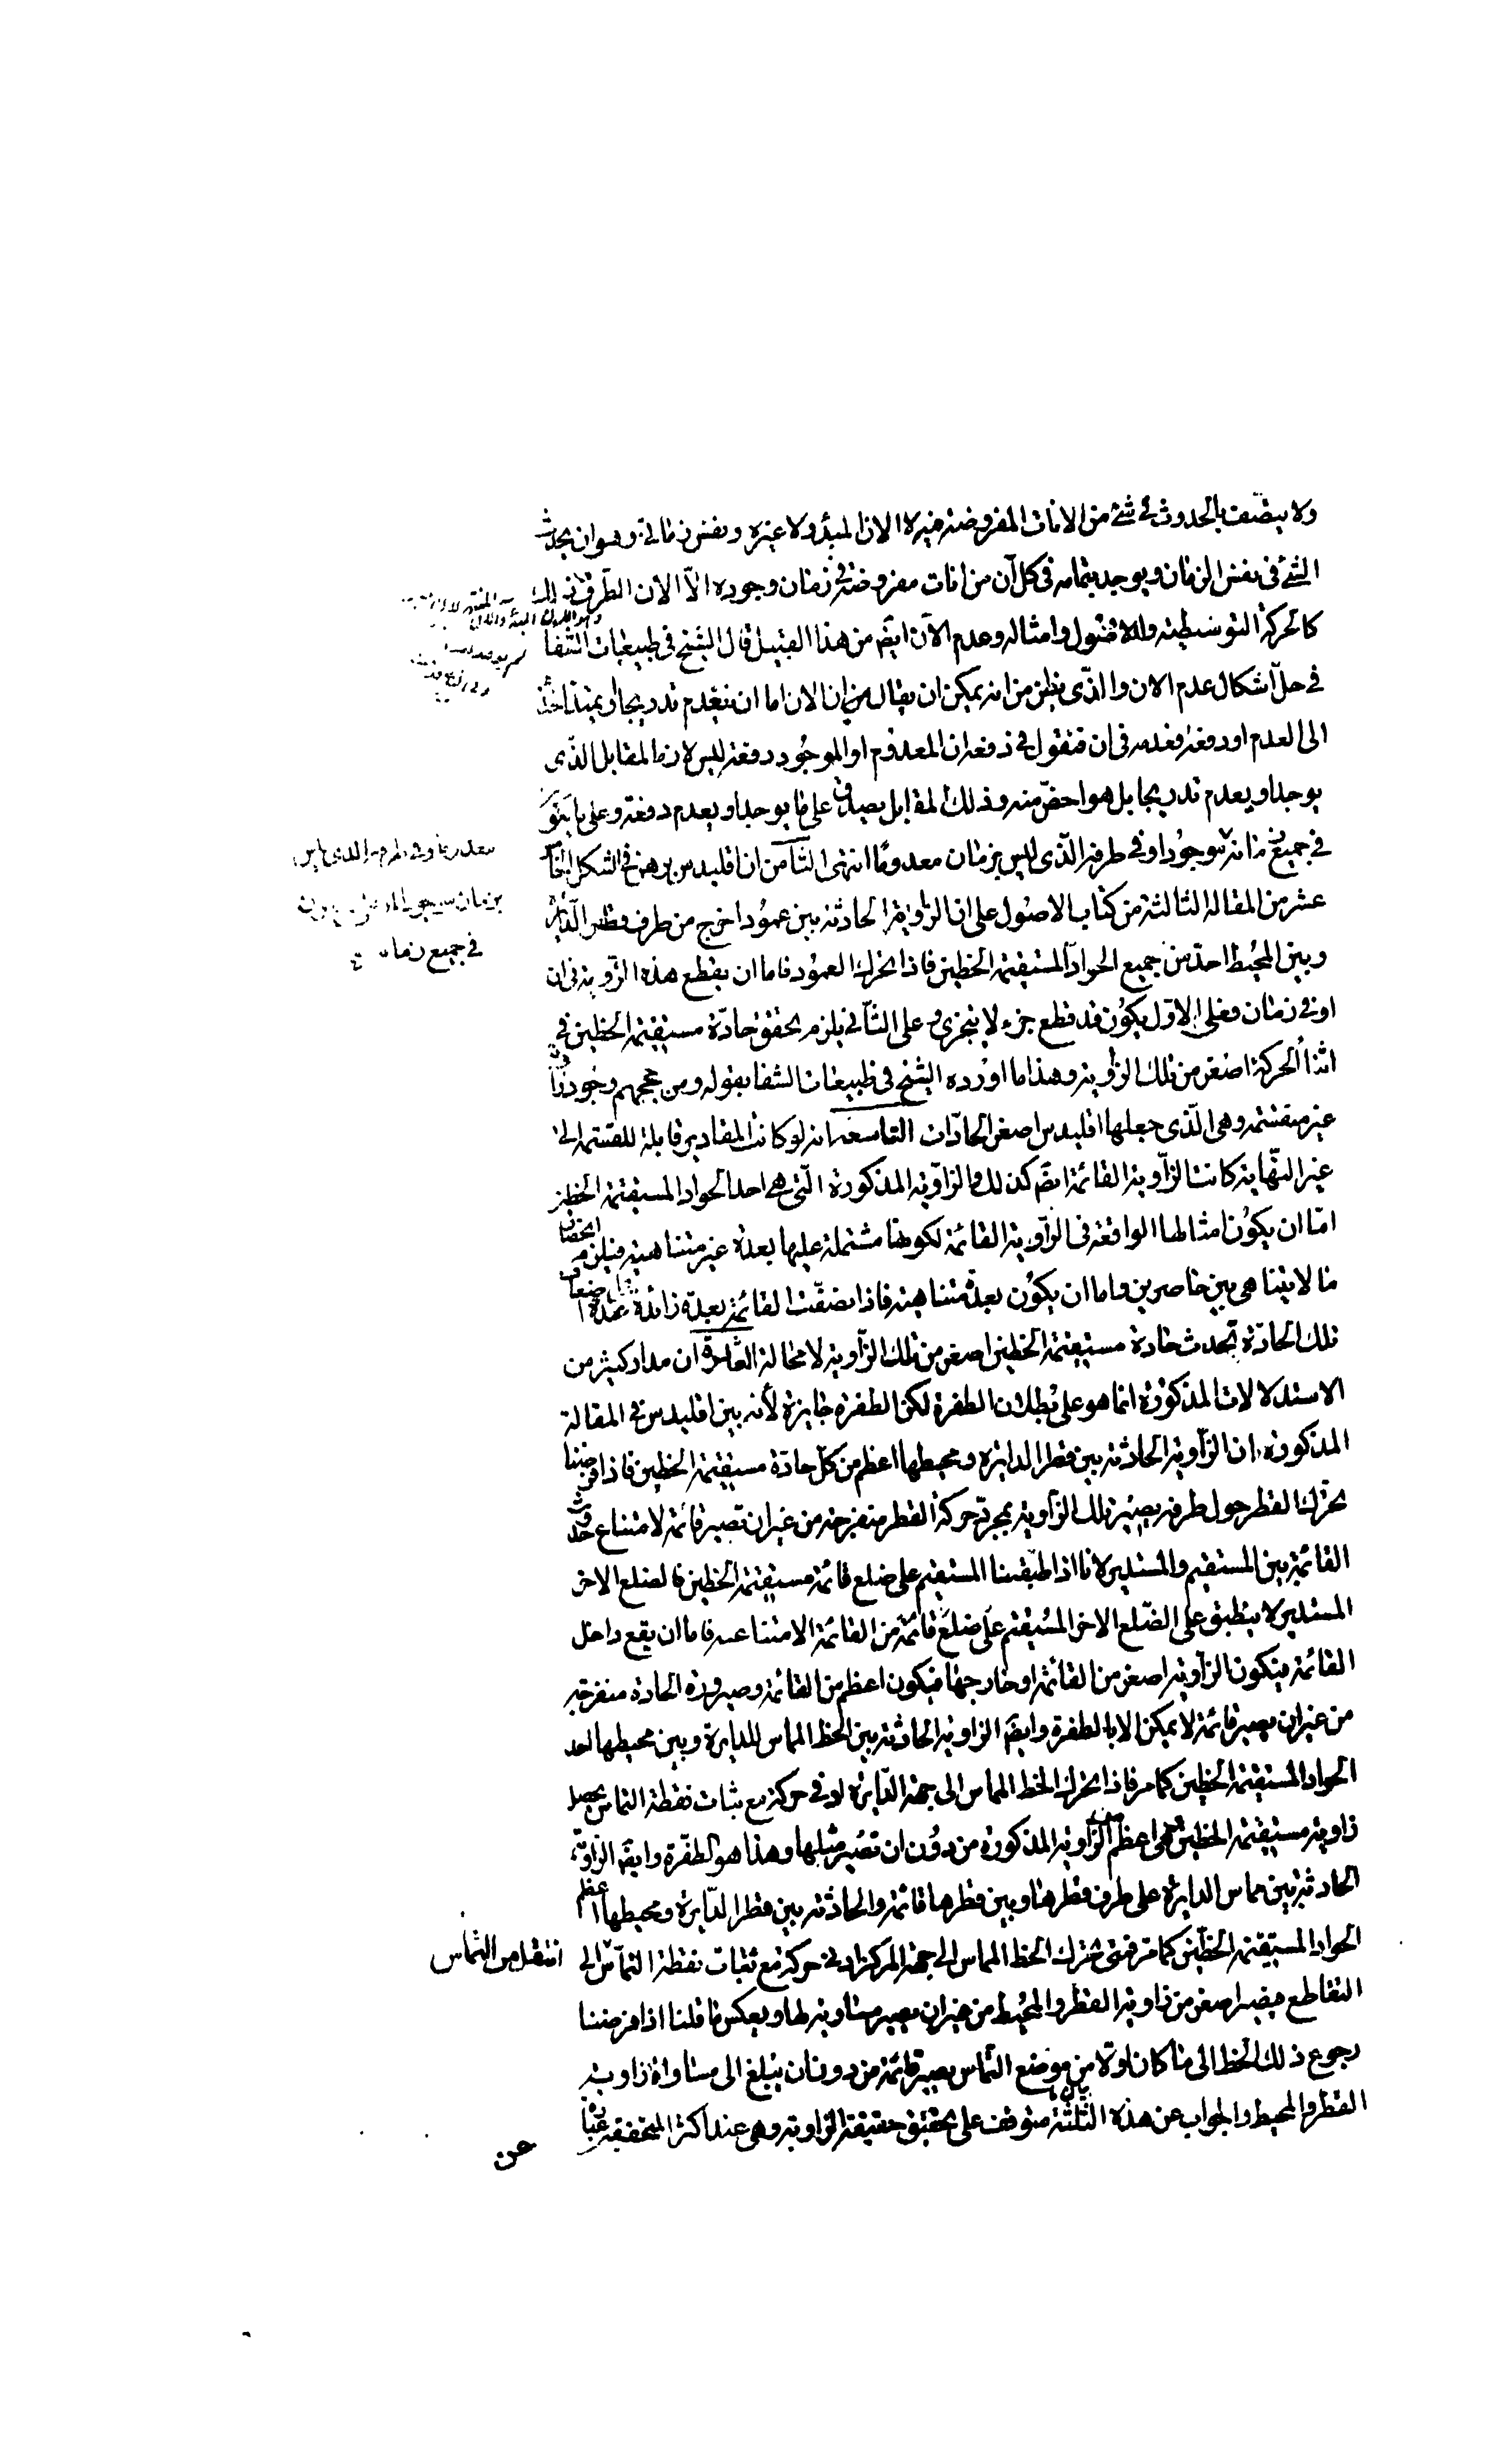 ولا يتصف بالحدوث في شئ من الانات المفروضة فيه لا الان المبدء ولا غيره ونفس زماني وهو ان يحدث
الشئ في نفس الزمان ويوجد بتمامه في كل آن من انات مفروضة في زمان وجوده الا الان الطرف
كالحركة التوسطية والاضول وامثاله وعدم الآن ايضم من هذا القبيل قال الشيخ في طبيعيات الشفا
في حل اشكال عدم الان والذي يظن من انه يمكن ان يقال من ان الان اما ان ينعدم تدريجا ويمتد اخذ
الى العدم او دفعة فعدمه في ان فنقول في دفعه ان المعدوم او الموجود دفعة ليس لازما المقابل الذي
يوجد او يعدم تدريجا بل هو اخص منه وذلك المقابل يصدق على ما يوجد او يعدم دفعة وعلى ما
في جميع زمانه موجودا وفي طرفه الذي ليس بزمان معدوما انتهى الثامن ان اقليدس برهن في الشكل الخا
عشر من المقالة الثالثة من كتاب الاصول على ان الزاوية الحادثة بين عمود اخرج من طرف قطر الدايرة
وبين المحيط احد من جميع الحواد المستقيمة الخطين فاذا تحرك العمود فاما ان يقطع هذه الزاوية في ان
او في زمان فعلى الاول يكون قد قطع جزء لا يتجزى وعلى الثاني يلزم تحقق حادة مستقيمة الخطين في
اثنا الحركة اصغر من تلك الزاوية وهذا ما اورده الشيخ في طبيعيات الشفا بقوله ومن حججهم وجود زاوية
غير منقسمة وهي الذي جعلها اقليدس اصغر الحادات التاسع انه لو كانت المقادير قابلة للقسمة الى
غير النهاية كانت الزاوية القائمة ايضم كذلك والزاوية المذكورة التي هي احد الحواد المستقيمة الخطين
اما ان يكون امثالها الواقعة في الزاوية القائمة لكونها مشتملة عليها بعدة غير متناهية فيلزم انحصار
ما لا يتناهى بين حاصرين واما ان يكون بعدة متناهية فاذا نصفت القائمة بعدة زائدة عدة اضعاف
تلك الحادة تحدث حادة مستقيمة الخطين اصغر من تلك الزاوية لا محالة العاشر ان مدار كثير من
الاستدلالات المذكورة انما هو على بطلان الطفرة لكن الطفرة جايزة لأنه بين اقليدس في المقالة
المذكورة ان الزاوية الحادثة بين قطر الدايرة ومحيطها اعظم من كل حادة مستقيمة الخطين فاذا فرضنا
تحرك القطر حول طرفه يصير تلك الزاوية بمجرد حركة القطر منفرجة من غير ان تصير قائمة لامتناع حدوث
القائمة بين المستقيم والمستدير لانا اذا طبقنا المستقيم على ضلع قائمة مستقيمة الخطين فالضلع الاخر
المستدير لا ينطبق على الضلع الاخر المستقيم على ضلع قائمة من القائمة الامتناعه فاما ان يقع داخل
القائمة فيكون الزاوية اصغر من القائمة او خارجها فيكون اعظم من القائمة وصيرورة الحادة منفرجة
من غير ان يصير قائمة لا يمكن الا بالطفرة وايضم الزاوية الحادثة بين الخط المماس للدايرة وبين محيطها احد
الحواد المستقيمة الخطين كما مر فاذا تحرك الخط المماس الى جهة الدايرة ادنى حركة مع ثبات نقطة التماس يحصل
زاوية مستقيمة الخطين هي اعظم من الزاوية المذكورة من دون ان تصير مثلها وهذا هو الطفرة وايضم الزاوية
الحادثة بين مماس الدايرة على طرف قطرها وبين قطرها قائمة والحادثة بين قطر الدايرة ومحيطها اعظم
الحواد المستقيمة الخطين كما مر فمتى تحرك الخط المماس الى جهة المركز ادنى حركة مع ثبات نقطة التماس الى
انتقل من التماس
التقاطع فيصير اصغر من زاوية القطر والمحيط من غير ان يصير مساوية لها وبعكس ما قلنا اذا فرضنا
رجوع ذلك الخط الى ما كان اولا من موضع التماس يصير قائمة من دون ان يبلغ الى مساواة زاوية
القطر والمحيط والجواب عن هذه الثلثة متوقف على تحقيق حقيقة الزاوية وهي عند اكثر المحققين عبارة
عن
في جميع زمانه